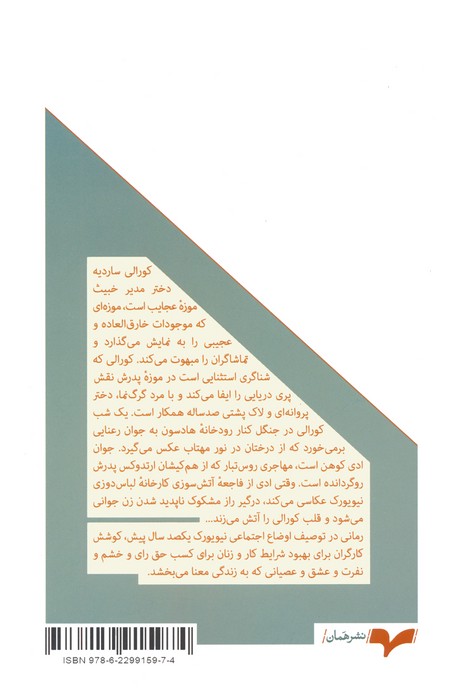 کورالی ساردیه
دختر مدیر خبیث
موزهٔ عجایب است، موزه‌ای
که موجودات خارق‌العاده و
عجیبی را به نمایش می‌گذارد و
تماشاگران را مبهوت می‌کند. کورالی که
شناگری استثنایی است در موزهٔ پدرش نقش
پری دریایی را ایفا می‌کند و با مرد گرگ‌نما، دختر
پروانه‌ای و لاک پشتی صدساله همکار است. یک شب
کورالی در جنگل کنار رودخانهٔ هادسون به جوان رعنایی
برمی‌خورد که از درختان در نور مهتاب عکس می‌گیرد. جوان
ادی کوهن است، مهاجری روس‌تبار که از هم‌کیشان ارتدوکس پدرش
روگردانده است. وقتی ادی از فاجعهٔ آتش‌سوزی کارخانهٔ لباس‌دوزی
نیویورک عکاسی می‌کند، درگیر راز مشکوک ناپدید شدن زن جوانی
می‌شود و قلب کورالی را آتش می‌زند...
رمانی در توصیف اوضاع اجتماعی نیویورک یکصد سال پیش، کوشش
کارگران برای بهبود شرایط کار و زنان برای کسب حق رای و خشم و
نفرت و عشق و عصیانی که به زندگی معنا می‌بخشد.
/نشر هَمان/
ISBN 978-6-2299159-7-4